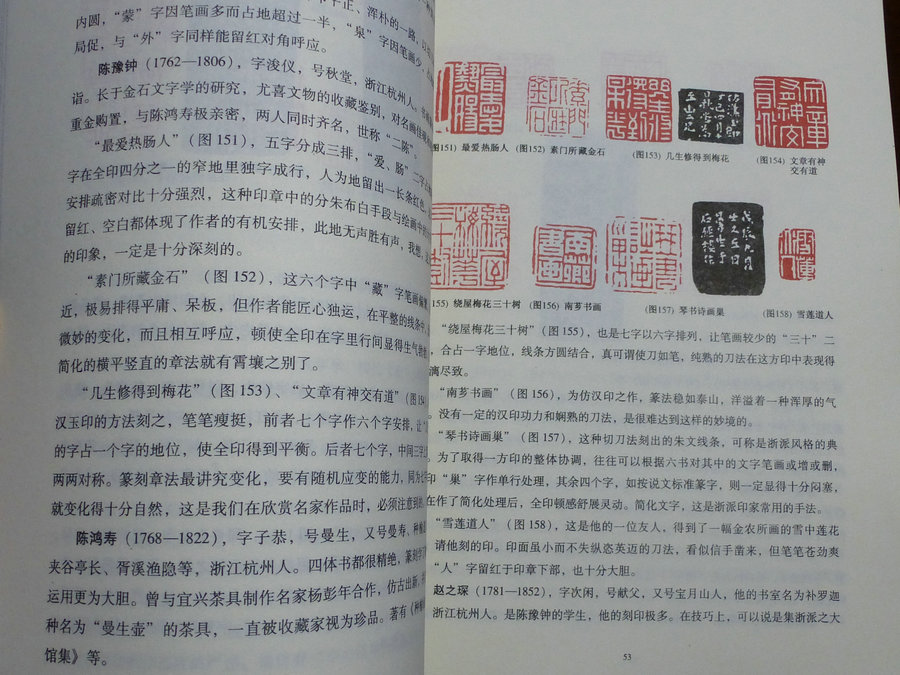 平正、浑朴的一路，以
内圆，“蒙”字因笔画多而占地超过一半，“泉”字因笔画少，
局促，与“外”字同样能留红对角呼应。
陈豫钟（1762—1806），字浚仪，号秋堂，浙江杭州人。
诣。长于金石文字学的研究，尤喜文物的收藏鉴别，对名画佳
重金购置，与陈鸿寿极亲密，两人同时齐名，世称“二陈”。
“最爱热肠人”（图 151），五字分成三排，“爱、肠”二字
字在全印四分之一的窄地里独字成行，人为地留出一长条红色，
安排疏密对比十分强烈，这种印章中的分朱布白手段与绘画中的
留红、空白都体现了作者的有机安排，此地无声胜有声，我想，
的印象，一定是十分深刻的。
“素门所藏金石”（图 152），这六个字中“藏”字笔画
近，极易排得平庸、呆板，但作者能匠心独运，在平整的线条中，
微妙的变化，而且相互呼应，顿使全印在字里行间显得生气
简化的横平竖直的章法就有霄壤之别了。
“几生修得到梅花”（图 153）、“文章有神交有道”（图 154）
汉玉印的方法刻之，笔笔瘦挺，前者七个字作六个字安排，让“
的字占一个字的地位，使全印得到平衡。后者七个字，中间三字
两两对称。篆刻章法最讲究变化，要有随机应变的能力，同为七
就变化得十分自然，这是我们在欣赏名家作品时，必须注意到的。
陈鸿寿（1768—1822），字子恭，号曼生，又号曼寿、种榆
夹谷亭长、胥溪渔隐等，浙江杭州人。四体书都很精绝，篆刻学
运用更为大胆。曾与宜兴茶具制作名家杨彭年合作，仿古出新，
种名为“曼生壶”的茶具，一直被收藏家视为珍品。著有《种榆
馆集》等。
图151）最爱热肠人 （图152）素门所藏金石 （图153）几生修得到梅花 （图154）文章有神
交有道
155）绕屋梅花三十树 （图156）南芗书画 （图157）琴书诗画巢 （图158）雪莲道人
“绕屋梅花三十树”（图 155），也是七字以六字排列，让笔画较少的“三十”二
，合占一字地位，线条方圆结合，真可谓使刀如笔，纯熟的刀法在这方印中表现得
漓尽致。
“南芗书画”（图 156），为仿汉印之作，篆法稳如泰山，洋溢着一种浑厚的气
。没有一定的汉印功力和娴熟的刀法，是很难达到这样的妙境的。
“琴书诗画巢”（图 157），这种切刀法刻出的朱文线条，可称是浙派风格的典
。为了取得一方印的整体协调，往往可以根据六书对其中的文字笔画或增或删，
印“巢”字作单行处理，其余四个字，如按说文标准篆字，则一定显得十分闷塞，
在作了简化处理后，全印顿感舒展灵动。简化文字，这是浙派印家常用的手法。
“雪莲道人”（图 158），这是他的一位友人，得到了一幅金农所画的雪中莲花
请他刻的印。印面虽小而不失纵恣英迈的刀法，看似信手凿来，但笔笔苍劲爽
“人”字留红于印章下部，也十分大胆。
赵之琛（1781—1852），字次闲，号献父，又号宝月山人，他的书室名为补罗迦
浙江杭州人。是陈豫钟的学生，他的刻印极多。在技巧上，可以说是集浙派之大
53